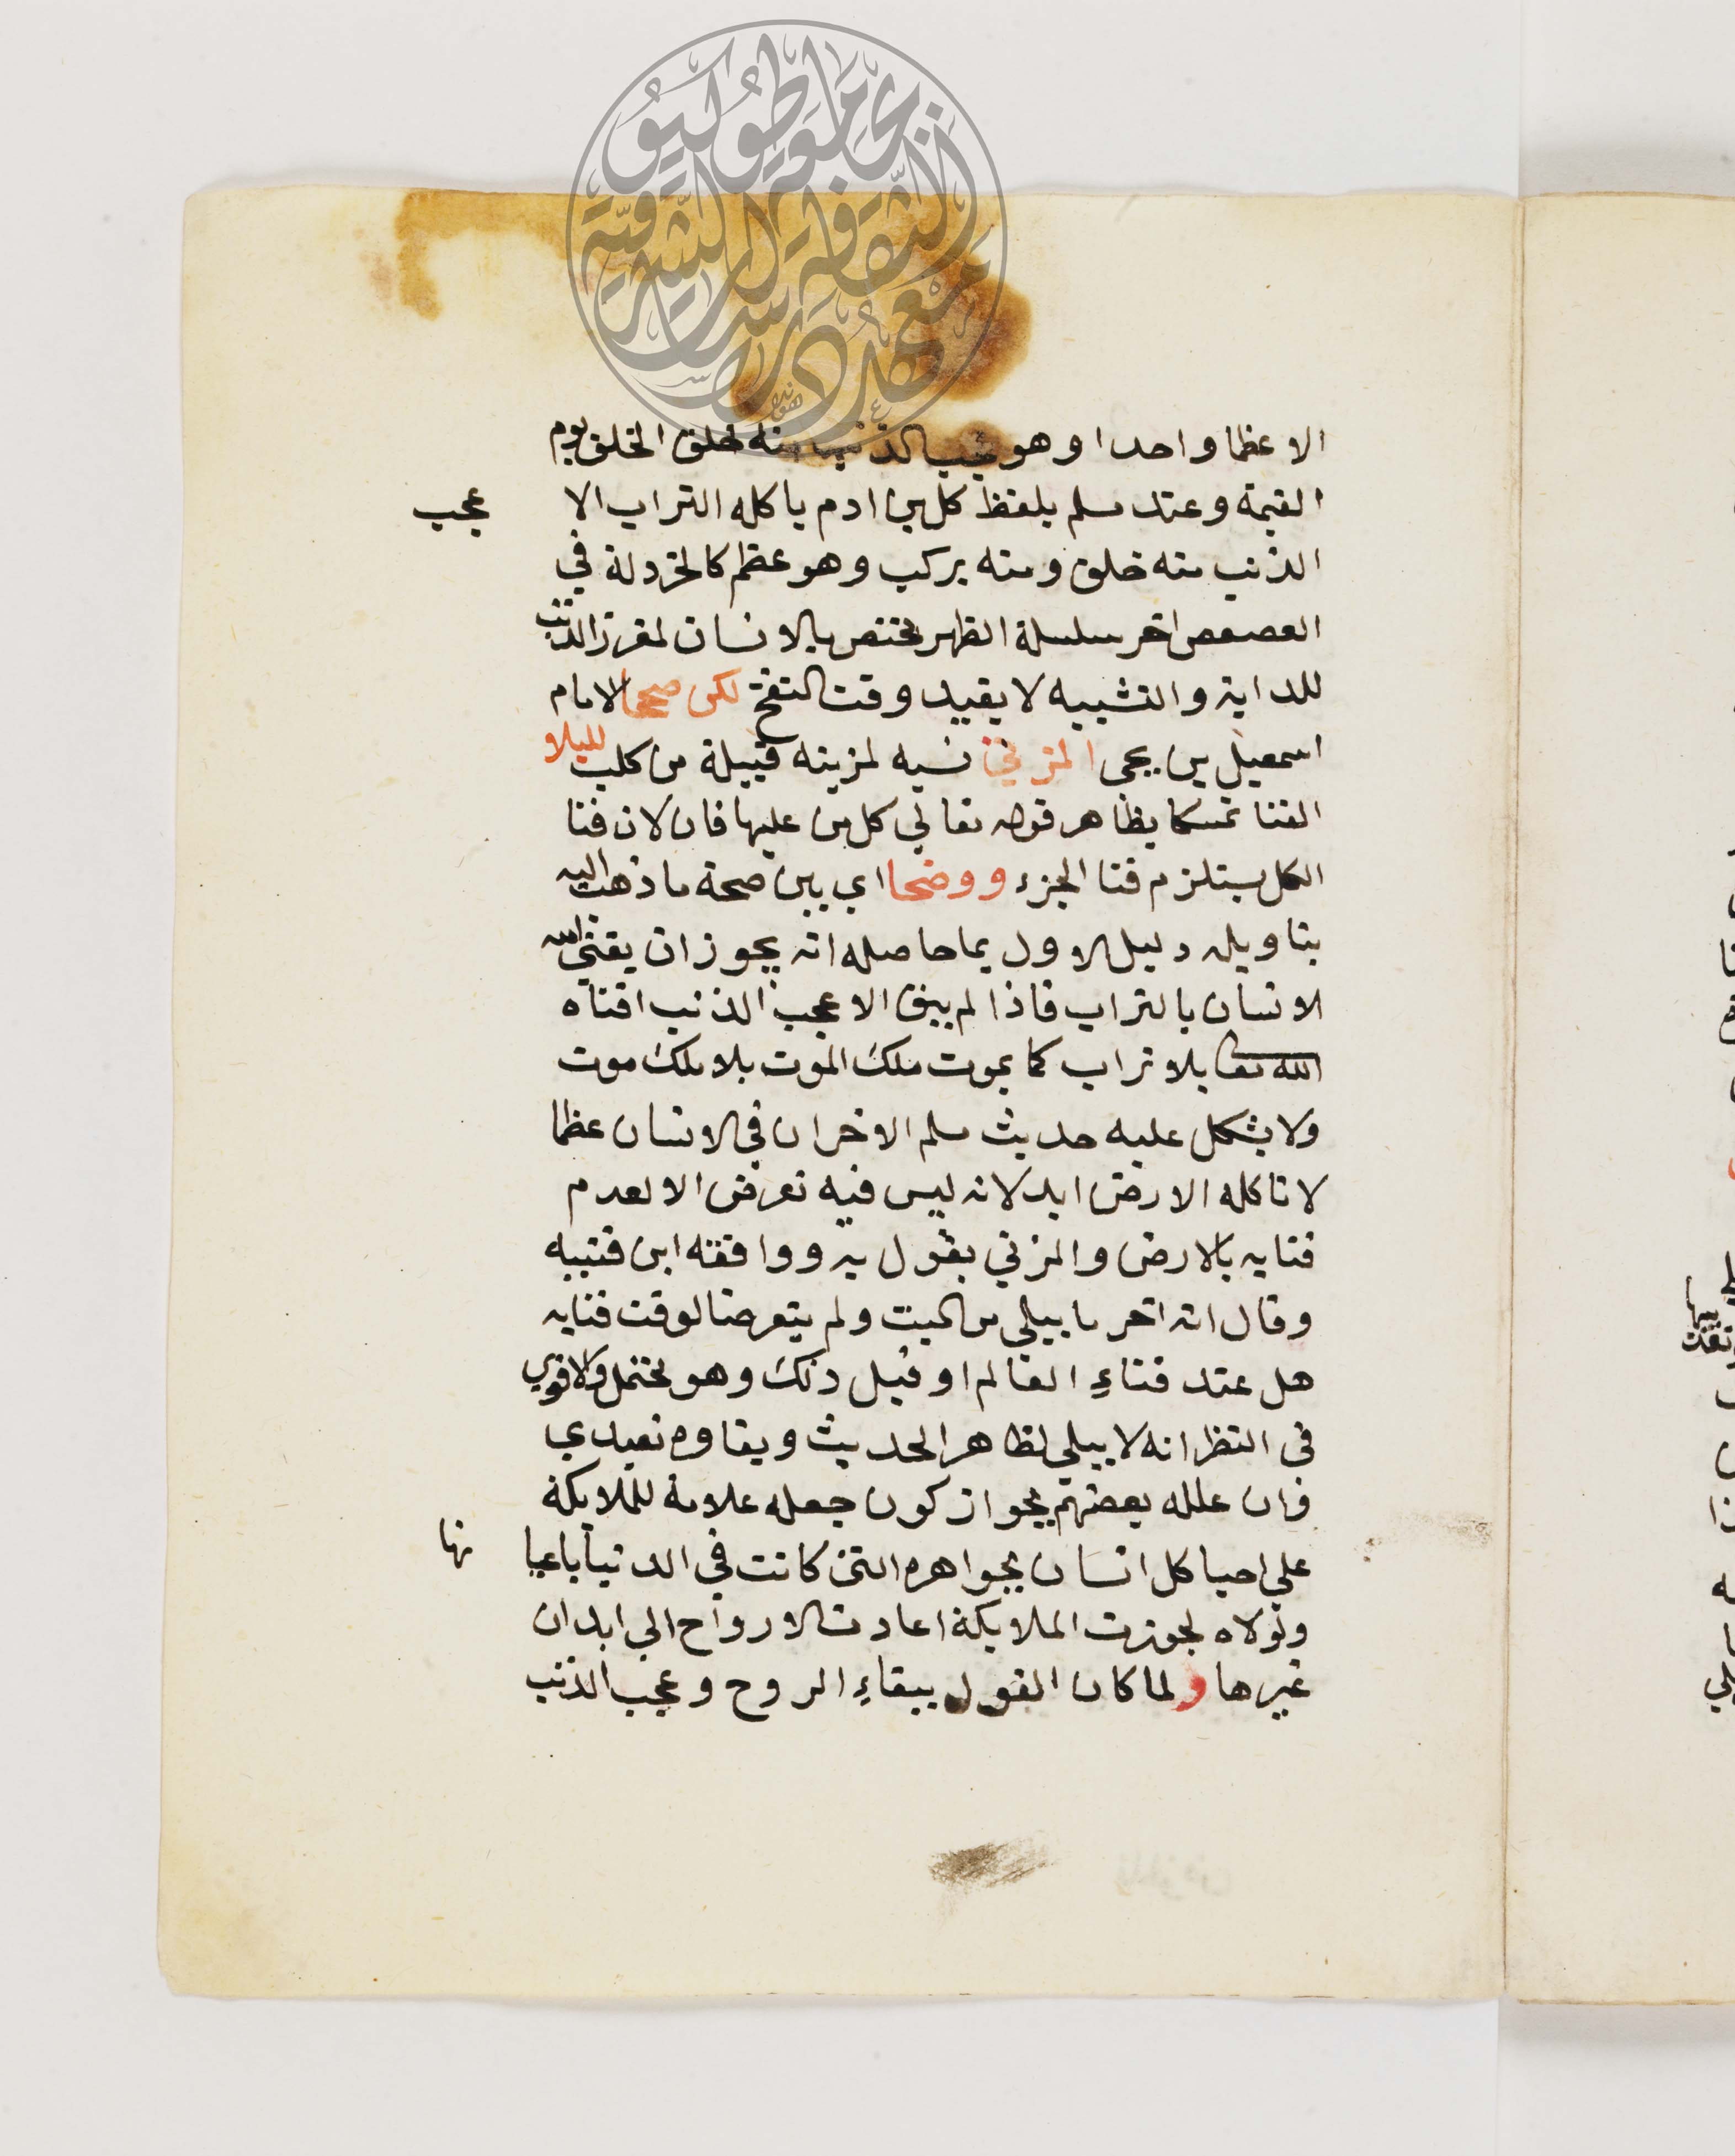 الا عظما واحدا وهو عجب الذنب منه خلق الخلق يوم
القيمة وعند مسلم بلفظ كل بن ادم ياكله التراب الا عجب
الذنب منه خلق ومنه يركب وهو عظم كالخردلة في
العصعص اخر سلسلة الظهر مختص بالانسان لمغرز الذنب
للدابة والتشبيه لا يقيد وقت النفخ لكن صححا الامام
اسمعيل بن يحي المزني نسبه لمزينه قبيلة من كلب للبلاو
الفنا تمسكا بظاهر قوله تعالي كل من عليها فان لان فنا
الكل يستلزم فنا الجزء ووضحا اي بين صحة ما ذهب اليه
بتاويله دليل الاول بما حاصله انه يجوز ان يفني الله
الانسان بالتراب فاذا لم يبق الا عجب الذنب افناه
الله تعا بلا تراب كما يموت ملك الموت بلا ملك موت
ولا يشكل عليه حديث مسلم الاخر ان في الانسان عظما
لا تاكله الارض ابد لانه ليس فيه تعرض الا لعدم
فنايه بالارض والمزني يقول به ووافقه ابن قتيبه
وقال انه اخر ما يبلي من الميت ولم يتعرضا لوقت فنايه
هل عند فناءِ العالم او قبل ذلك وهو محتمل والاقوي
في النظر انه لا يبلي لظاهر الحديث وبقاوه تعبدي
وان علله بعضهم بجواز كون جعله علامة للملايكة
علي احيا كل انسان بجواهره التي كانت في الدنيا باعيا نها
ولولاه لجوزت الملايكة اعادت الارواح الي ابدان
غيرها ولما كان القول ببقاءِ الروح وعجب الذنب